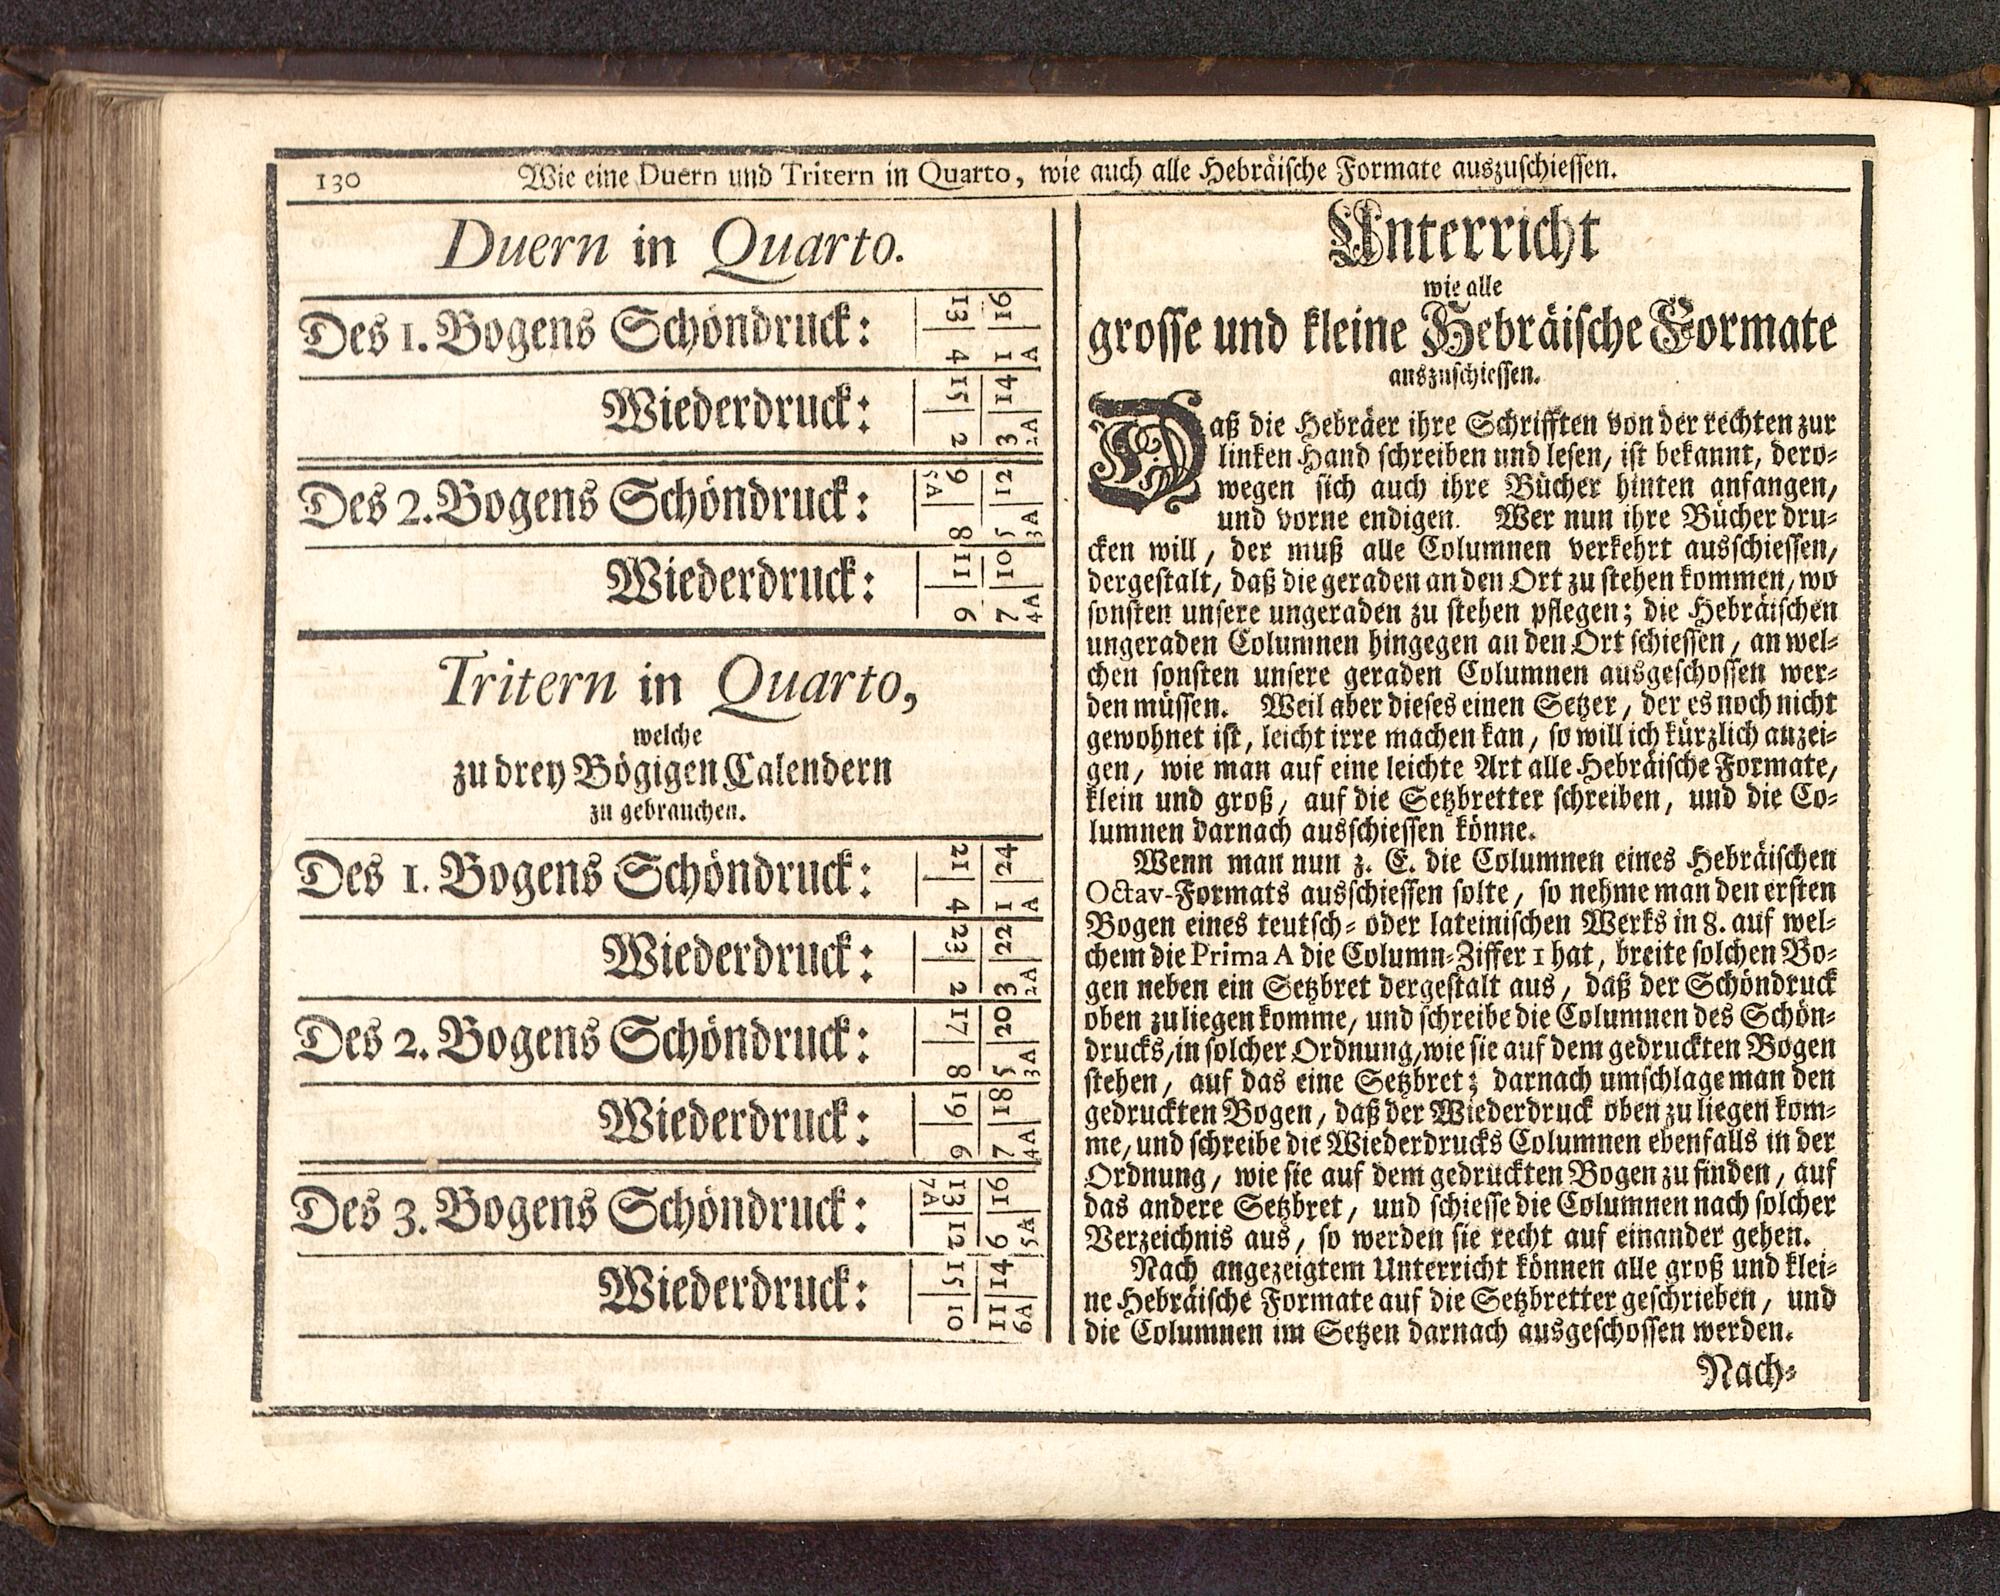 130 Wie eine Duern und Tritern in Quarto, wie auch alle Hebräische Formate auszuschiessen.
Duern in Quarto.
Des 1. Bogens Schöndruck:
13 16
4 1 A
Wiederdruck:
15 14
2 3 2A
Des 2. Bogens Schöndruck:
5A 9 12
8 5 3A
Wiederdruck:
11 10
6 7 4A
Tritern in Quarto,
welche
zu drey Bögigen Calendern
zu gebrauchen.
Des 1. Bogens Schöndruck:
21 24
4 1 A
Wiederdruck:
23 22
2 3 2A
Des 2. Bogens Schöndruck:
17 20
8 5 3A
Wiederdruck:
19 18
6 7 4A
Des 3. Bogens Schöndruck:
7A 13 16
12 9 5A
Wiederdruck:
15 14
10 11 6A
Unterricht
wie alle
grosse und kleine Hebräische Formate
auszuschiessen.
Daß die Hebräer ihre Schrifften von der rechten zur
linken Hand schreiben und lesen, ist bekannt, dero-
wegen sich auch ihre Bücher hinten anfangen,
und vorne endigen. Wer nun ihre Bücher dru-
cken will, der muß alle Columnen verkehrt ausschiessen,
dergestalt, daß die geraden an den Ort zu stehen kommen, wo
sonsten unsere ungeraden zu stehen pflegen; die Hebräischen
ungeraden Columnen hingegen an den Ort schiessen, an wel-
chen sonsten unsere geraden Columnen ausgeschossen wer-
den müssen. Weil aber dieses einen Setzer, der es noch nicht
gewohnet ist, leicht irre machen kan, so will ich kürzlich anzei-
gen, wie man auf eine leichte Art alle Hebräische Formate,
klein und groß, auf die Setzbretter schreiben, und die Co-
lumnen darnach ausschiessen könne.
Wenn man nun z. E. die Columnen eines Hebräischen
Octav-Formats ausschiessen solte, so nehme man den ersten
Bogen eines teutsch- oder lateinischen Werks in 8. auf wel-
chem die Prima A die Column-Ziffer 1 hat, breite solchen Bo-
gen neben ein Setzbret dergestalt aus, daß der Schöndruck
oben zu liegen komme, und schreibe die Columnen des Schön-
drucks, in solcher Ordnung, wie sie auf dem gedruckten Bogen
stehen, auf das eine Setzbret; darnach umschlage man den
gedruckten Bogen, daß der Wiederdruck oben zu liegen kom-
me, und schreibe die Wiederdrucks Columnen ebenfalls in der
Ordnung, wie sie auf dem gedruckten Bogen zu finden, auf
das andere Setzbret, und schiesse die Columnen nach solcher
Verzeichnis aus, so werden sie recht auf einander gehen.
Nach angezeigtem Unterricht können alle groß und klei-
ne Hebräische Formate auf die Setzbretter geschrieben, und
die Columnen im Setzen darnach ausgeschossen werden.
Nach-